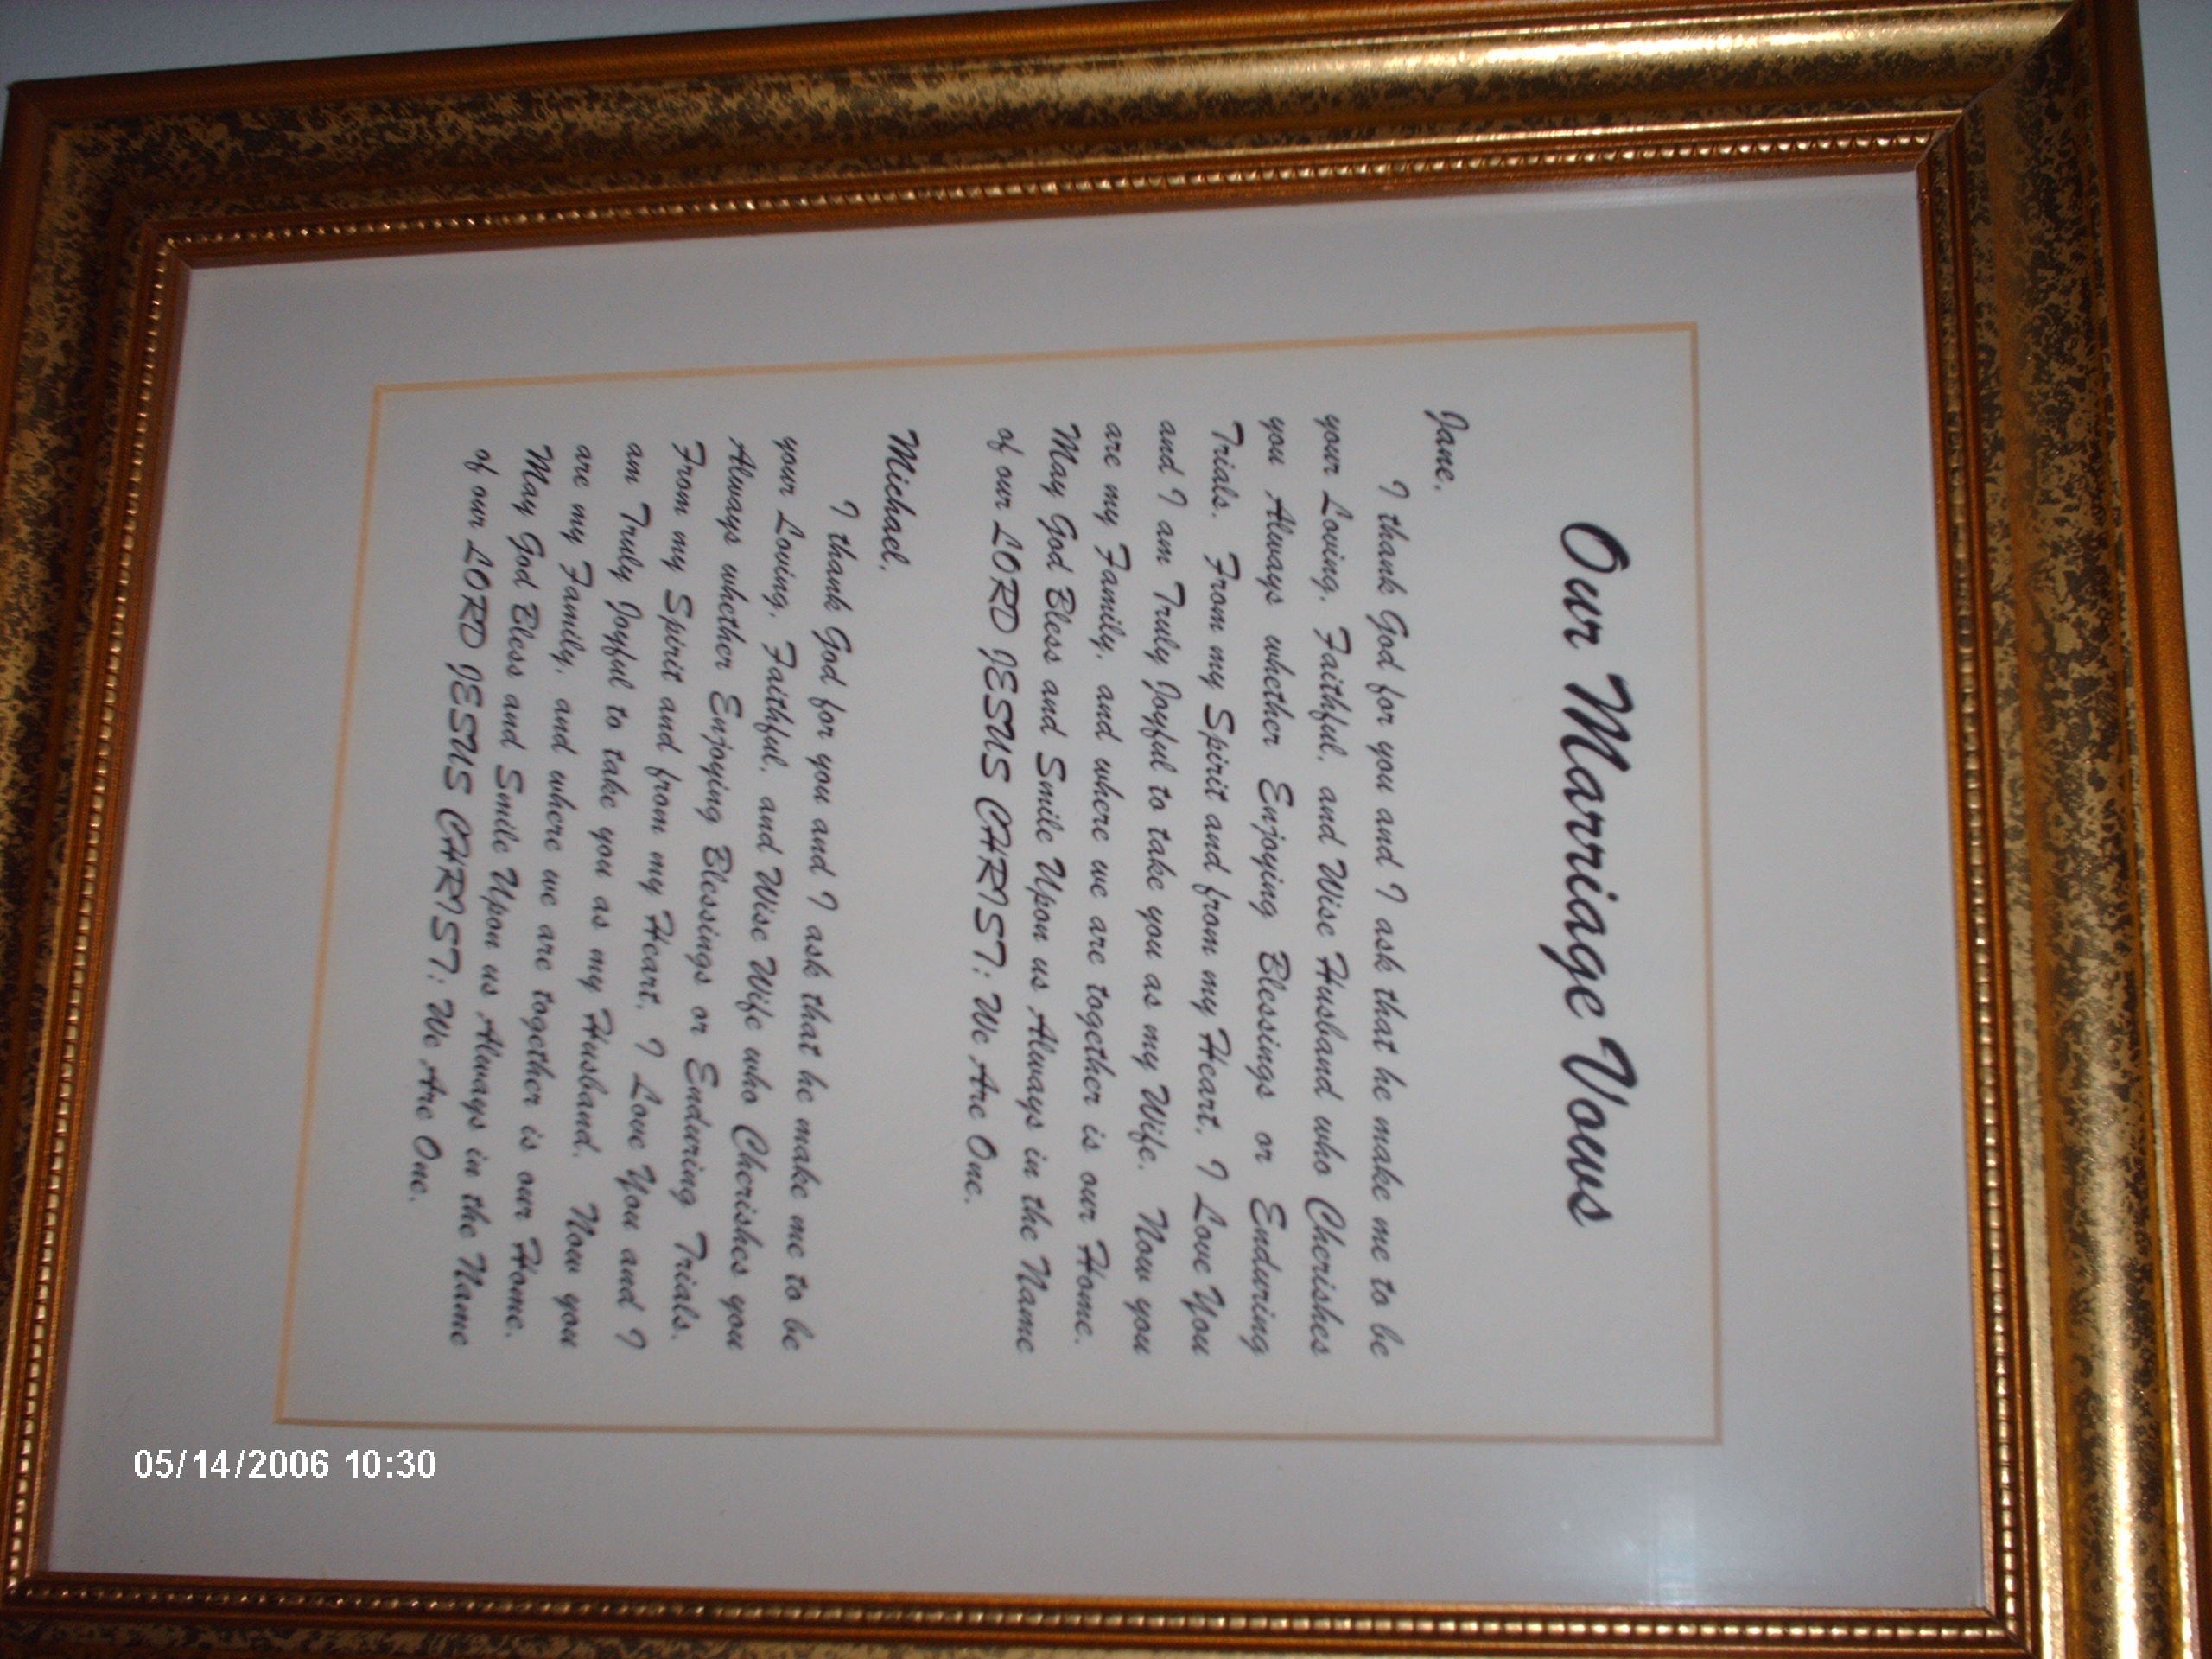 Our Marriage Vows
Jane,
I thank God for you and I ask that he make me to be
your Loving, Faithful, and Wise Husband who Cherishes
you Always whether Enjoying Blessings or Enduring
Trials. From my Spirit and from my Heart, I Love You
and I am Truly Joyful to take you as my Wife. Now you
are my Family, and where we are together is our Home.
May God Bless and Smile Upon us Always in the Name
of our LORD JESUS CHRIST; We Are One.
Michael,
I thank God for you and I ask that he make me to be
your Loving, Faithful, and Wise Wife who Cherishes you
Always whether Enjoying Blessings or Enduring Trials.
From my Spirit and from my Heart, I Love You and I
am Truly Joyful to take you as my Husband. Now you
are my Family, and where we are together is our Home.
May God Bless and Smile Upon us Always in the Name
of our LORD JESUS CHRIST; We Are One.
05/14/2006 10:30